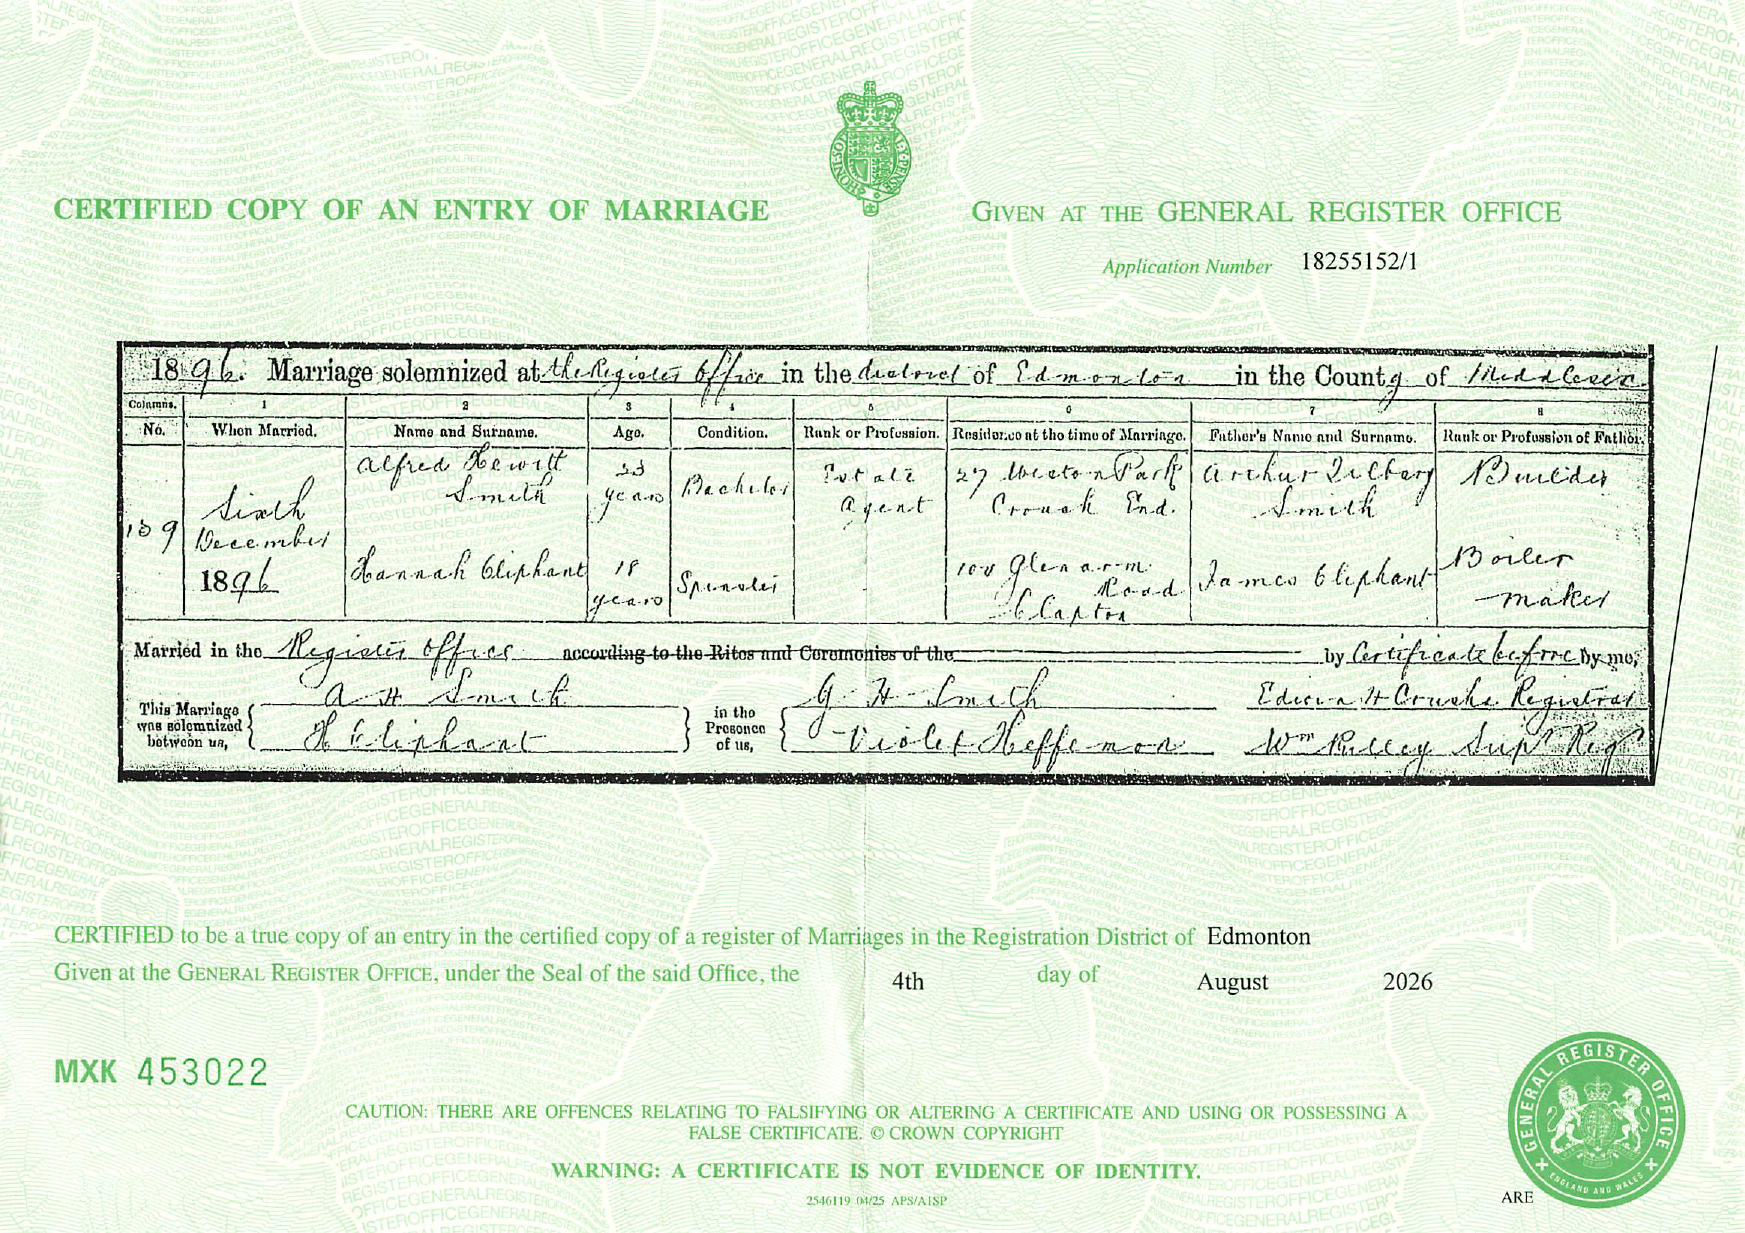 CERTIFIED COPY OF AN ENTRY OF MARRIAGE
GIVEN AT THE GENERAL REGISTER OFFICE
Application Number 18255152/1
1896. Marriage solemnized at the Register Office in the district of Edmonton in the County of Middlesex
Columns. 1 2 3 4 5 6 7 8
No. When Married. Name and Surname. Age. Condition. Rank or Profession. Residence at the time of Marriage. Father's Name and Surname. Rank or Profession of Father.
189
Sixth
December
1896
Alfred Hewitt
Smith
23
years
Bachelor
Estate
Agent
27 Weston Park
Crouch End.
Arthur Tilbury
Smith
Builder
Hannah Oliphant
18
years
Spinster
108 Glenarm
Road
Clapton
James Oliphant
Boiler
maker
Married in the Register Office according to the Rites and Ceremonies of the by Certificate before by me,
This Marriage
was solemnized
between us,
A H Smith
H Oliphant
in the
Presence
of us,
G H Smith
Violet Heffernon
Edwin H Registrar
Wm Pulley Supt Regr
CERTIFIED to be a true copy of an entry in the certified copy of a register of Marriages in the Registration District of Edmonton
Given at the GENERAL REGISTER OFFICE, under the Seal of the said Office, the 4th day of August 2026
MXK 453022
CAUTION: THERE ARE OFFENCES RELATING TO FALSIFYING OR ALTERING A CERTIFICATE AND USING OR POSSESSING A
FALSE CERTIFICATE. © CROWN COPYRIGHT
WARNING: A CERTIFICATE IS NOT EVIDENCE OF IDENTITY.
2546119 04/25 APS/A1SP
ARE
GENERAL REGISTER OFFICE
ENGLAND AND WALES